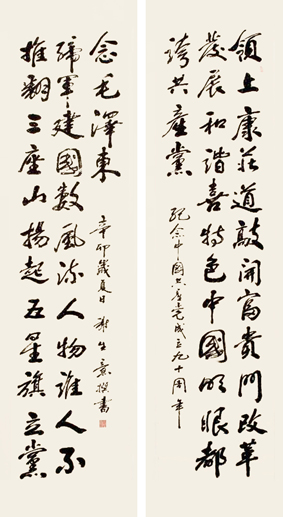 領上康莊道敲開富貴門改革
發展和諧喜特色中國明眼都
誇共產黨
紀念中國共產黨成立九十周年
推翻三座山揚起五星旗立黨
締軍建國數風流人物誰人不
念毛澤東
辛卯歲夏日謝生撰書